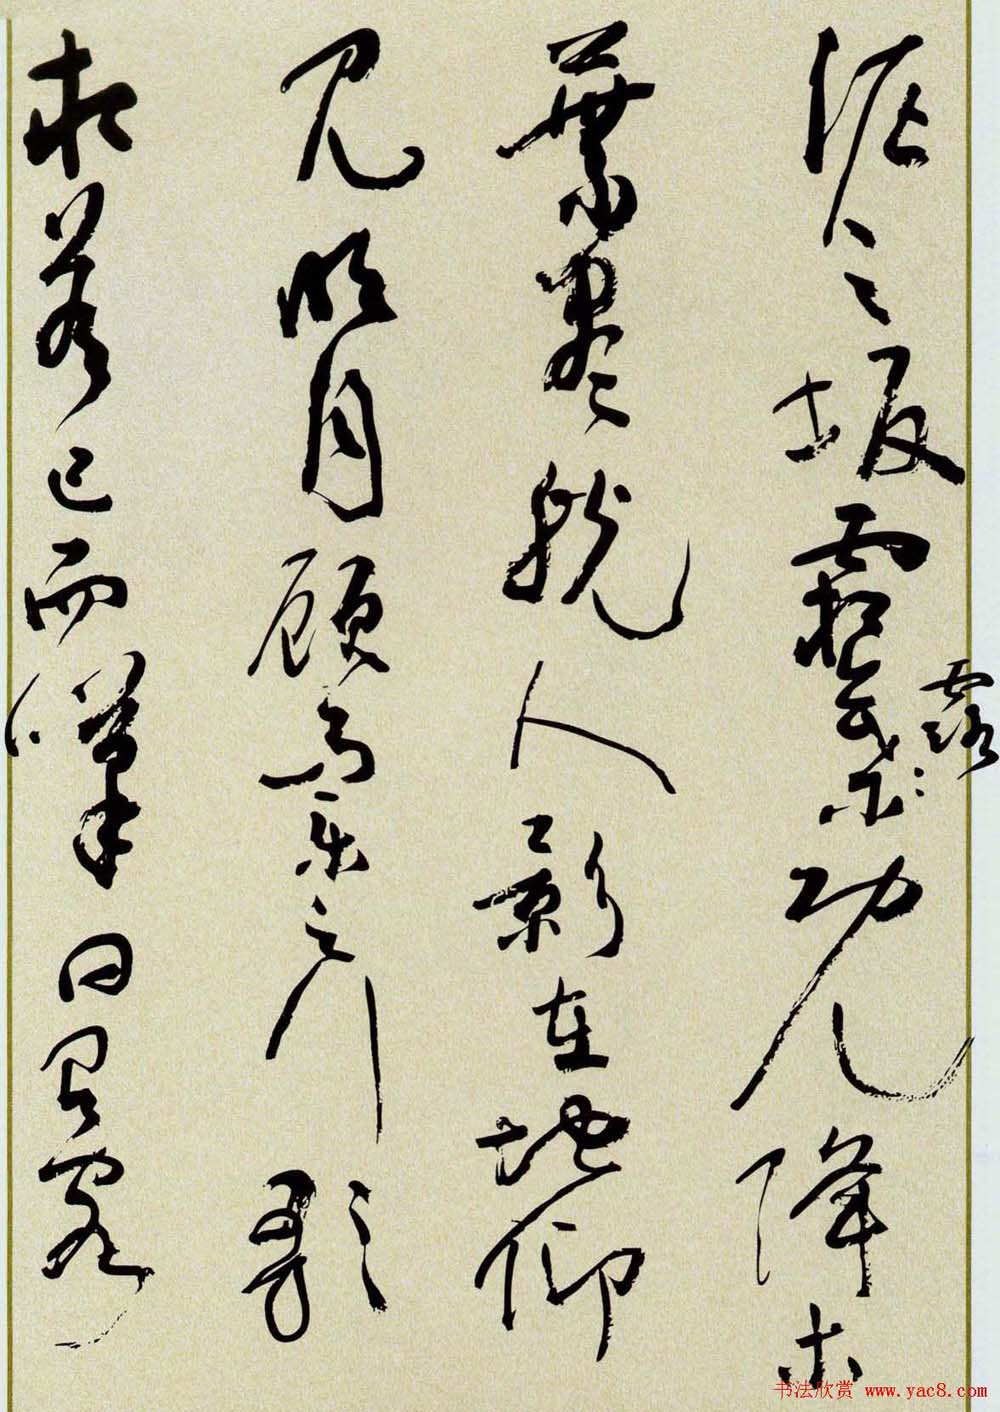 泥之坂霜露既降木
葉盡脫人影在地仰
見明月顧而樂之行歌
相答已而嘆曰有客
书法欣赏 www.yac8.com